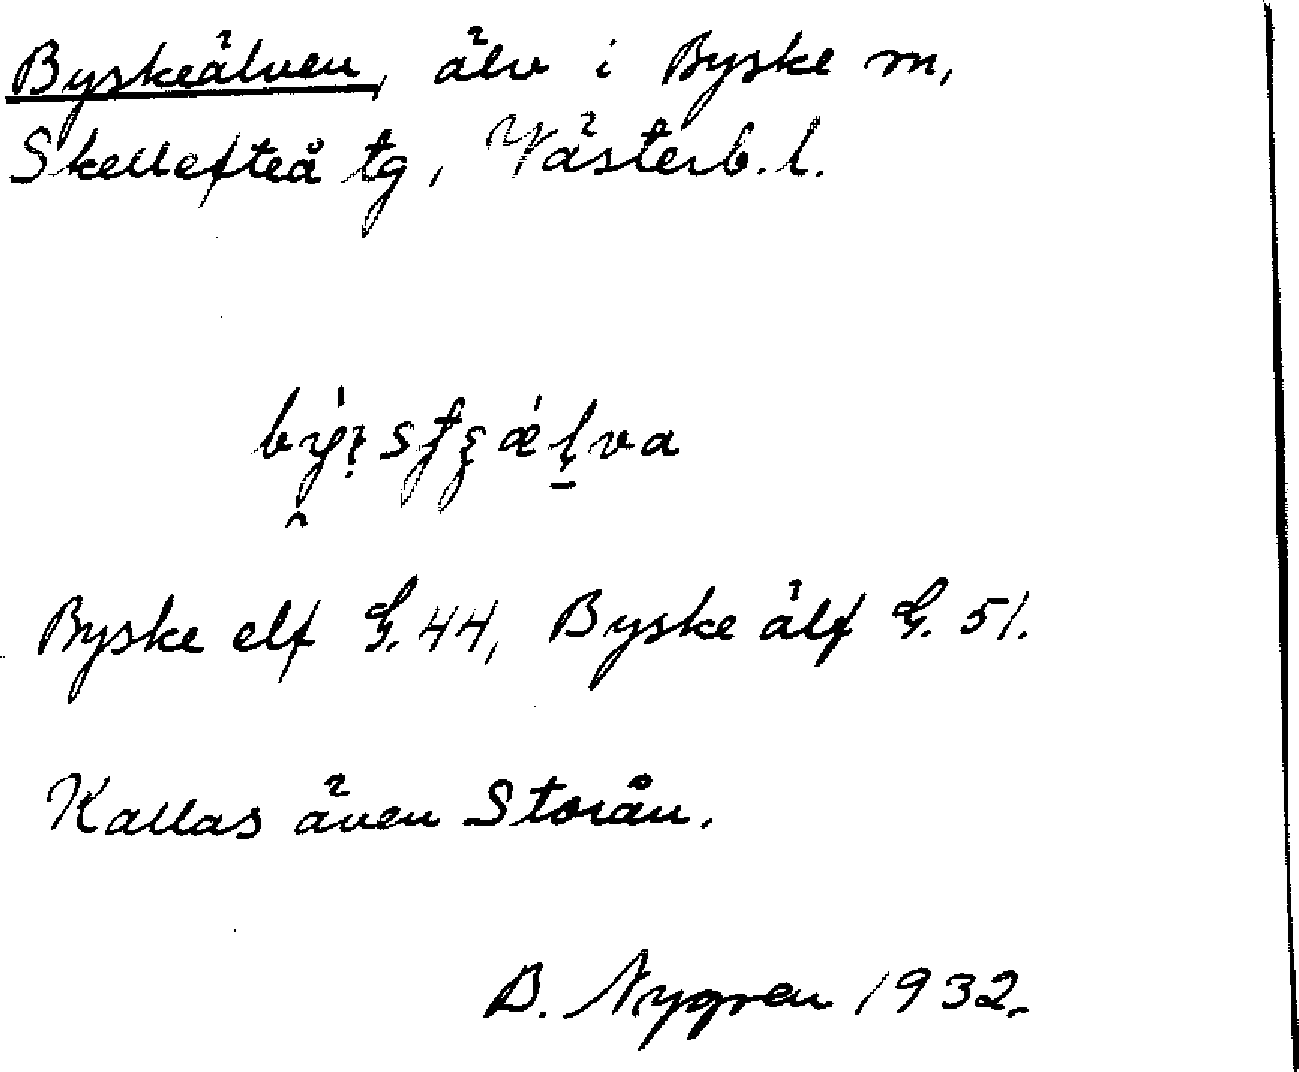 Byskeälven, älv i Byske sn,
Skellefteå tg, Västerb. l.
Byske elf G. 44, Byske älf G. 51.
Kallas även Storån.
B. Nygren 1932.